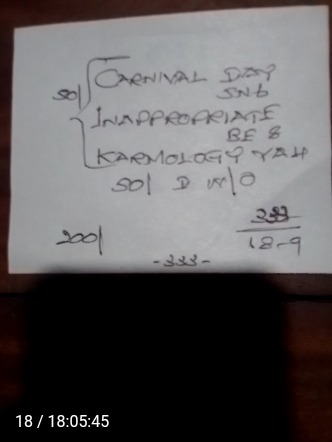 CARNIVAL DAY
50/ SNb
INAPPROPRIATE
BE 8
KARMOLOGY YAH
50/ D W/O
200/
18-9
-333-
18 / 18:05:45